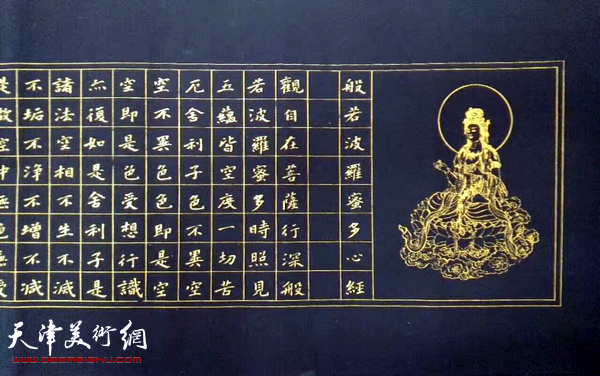 般若波羅蜜多心經
觀自在菩薩行深般
若波羅蜜多時照見
五蘊皆空度一切苦
厄舍利子色不異空
空不異色色即是空
空即是色受想行識
亦復如是舍利子是
諸法空相不生不滅
不垢不淨不增不減
是故空中無色無受
天津美術網